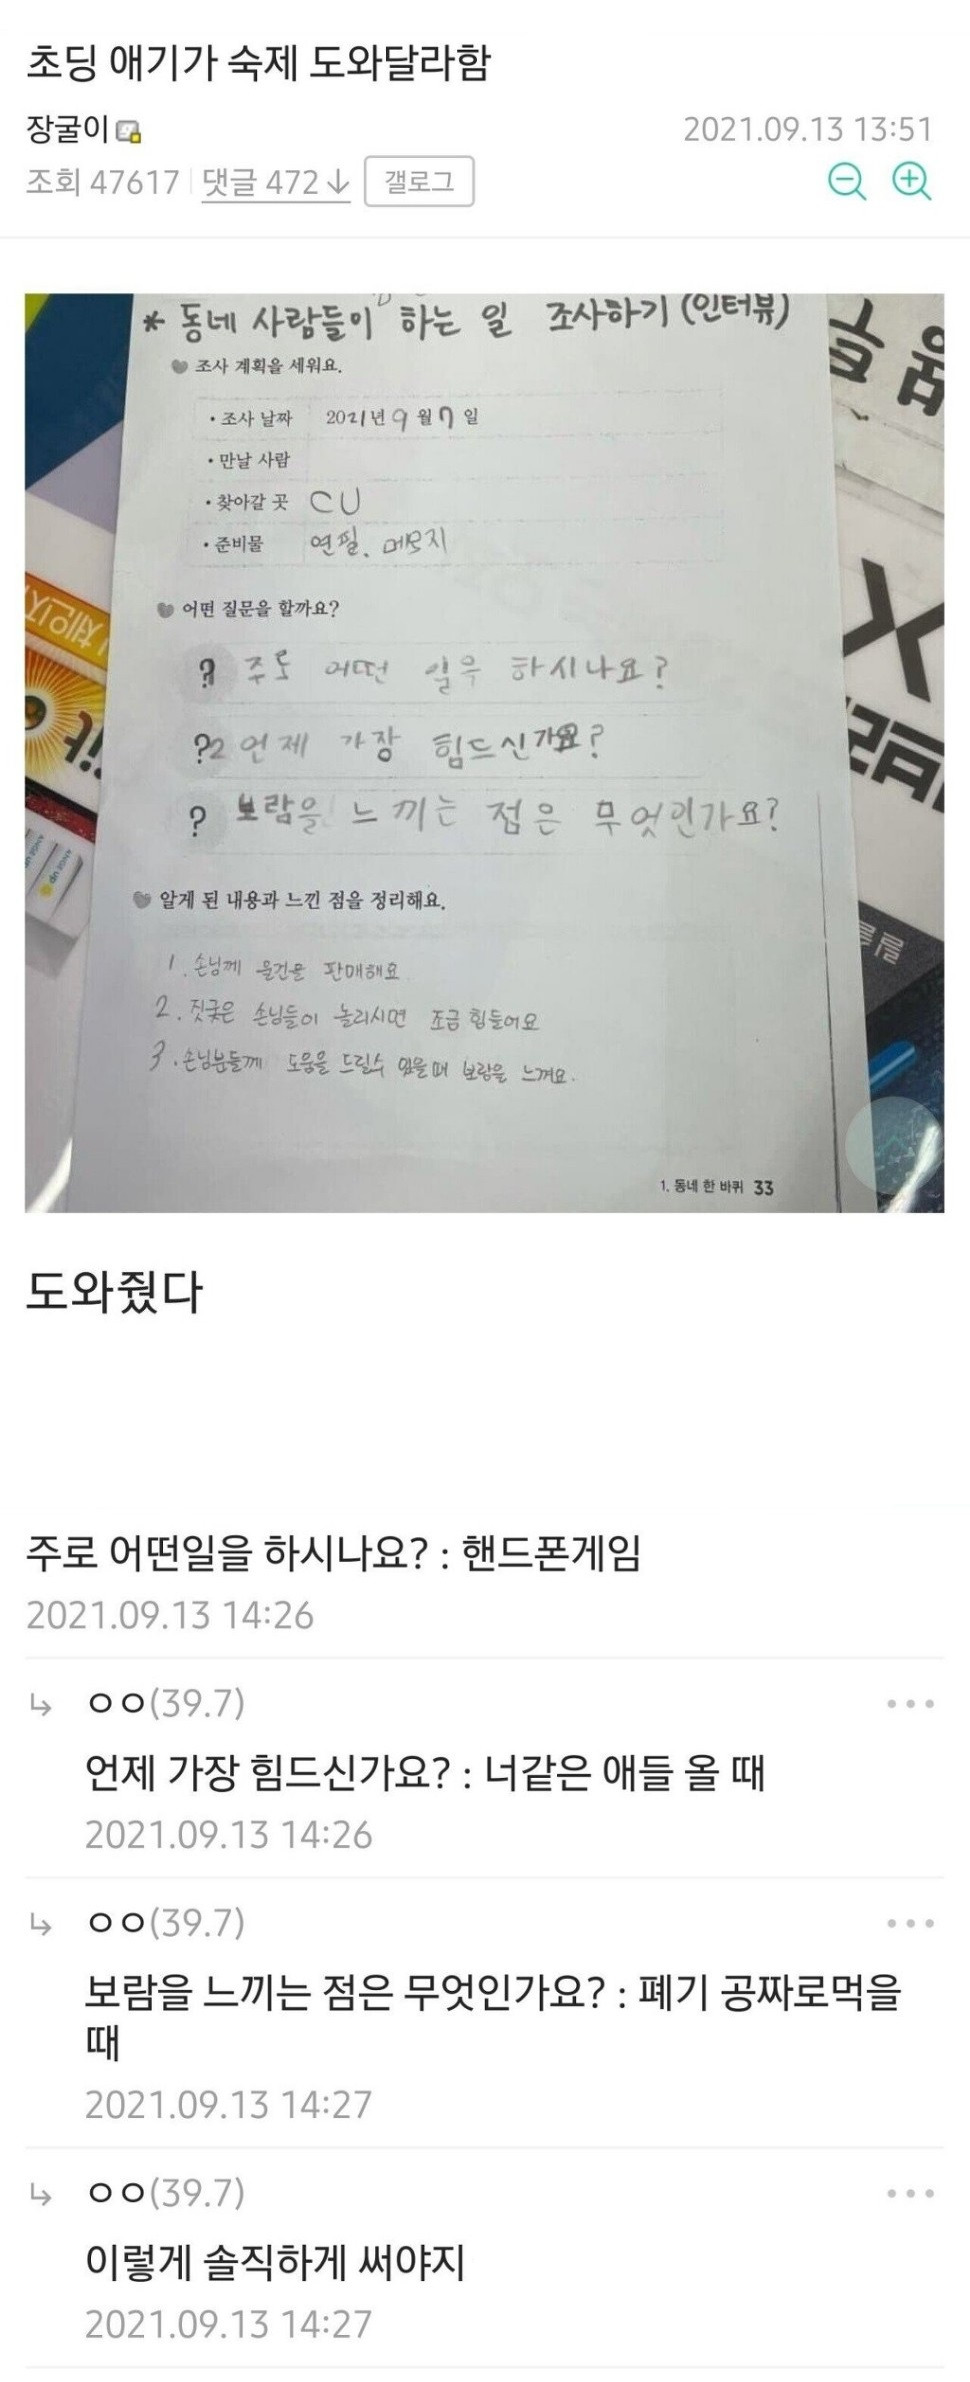 초딩 애기가 숙제 도와달라함
장굴이
2021.09.13 13:51
조회 47617 댓글 472↓ 갤로그
* 동네 사람들이 하는 일 조사하기 (인터뷰)
조사 계획을 세워요.
• 조사 날짜 2021년 9월 7일
• 만날 사람
• 찾아갈 곳 CU
• 준비물 연필. 메모지
어떤 질문을 할까요?
? 주로 어떤 일을 하시나요?
?2 언제 가장 힘드신가요?
? 보람을 느끼는 점은 무엇인가요?
알게 된 내용과 느낀 점을 정리해요.
1. 손님께 물건을 판매해요
2. 짓궂은 손님들이 놀리시면 조금 힘들어요
3. 손님분들께 도움을 드릴수 있을때 보람을 느껴요.
1. 동네 한 바퀴 33
도와줬다
주로 어떤일을 하시나요? : 핸드폰게임
2021.09.13 14:26
ㅇㅇ(39.7)
언제 가장 힘드신가요? : 너같은 애들 올 때
2021.09.13 14:26
ㅇㅇ(39.7)
보람을 느끼는 점은 무엇인가요? : 폐기 공짜로먹을
때
2021.09.13 14:27
ㅇㅇ(39.7)
이렇게 솔직하게 써야지
2021.09.13 14:27